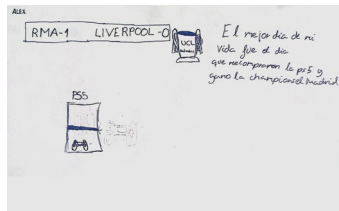 ALEX
RMA-1 LIVERPOOL-0
UCL
El mejor día de mi
vida fue el día
que me compraron la ps5 y
gano la championsel Madrid
PS5